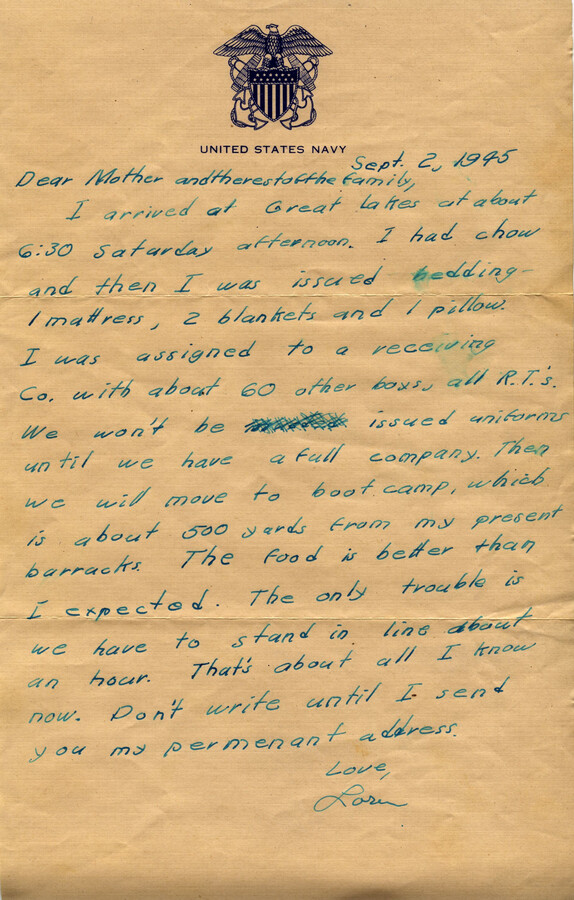 UNITED STATES NAVY
Sept. 2, 1945
Dear Mother and the rest of the family,
I arrived at Great Lakes at about
6:30 Saturday afternoon. I had chow
and then I was issued bedding-
1 mattress, 2 blankets and 1 pillow.
I was assigned to a receiving
Co. with about 60 other boys, all R.T.'s.
We won't be issued uniforms
until we have a full company. Then
we will move to boot camp, which
is about 500 yards from my present
barracks. The food is better than
I expected. The only trouble is
we have to stand in line about
an hour. That's about all I know
now. Don't write until I send
you my permenant address.
Love,
Loren